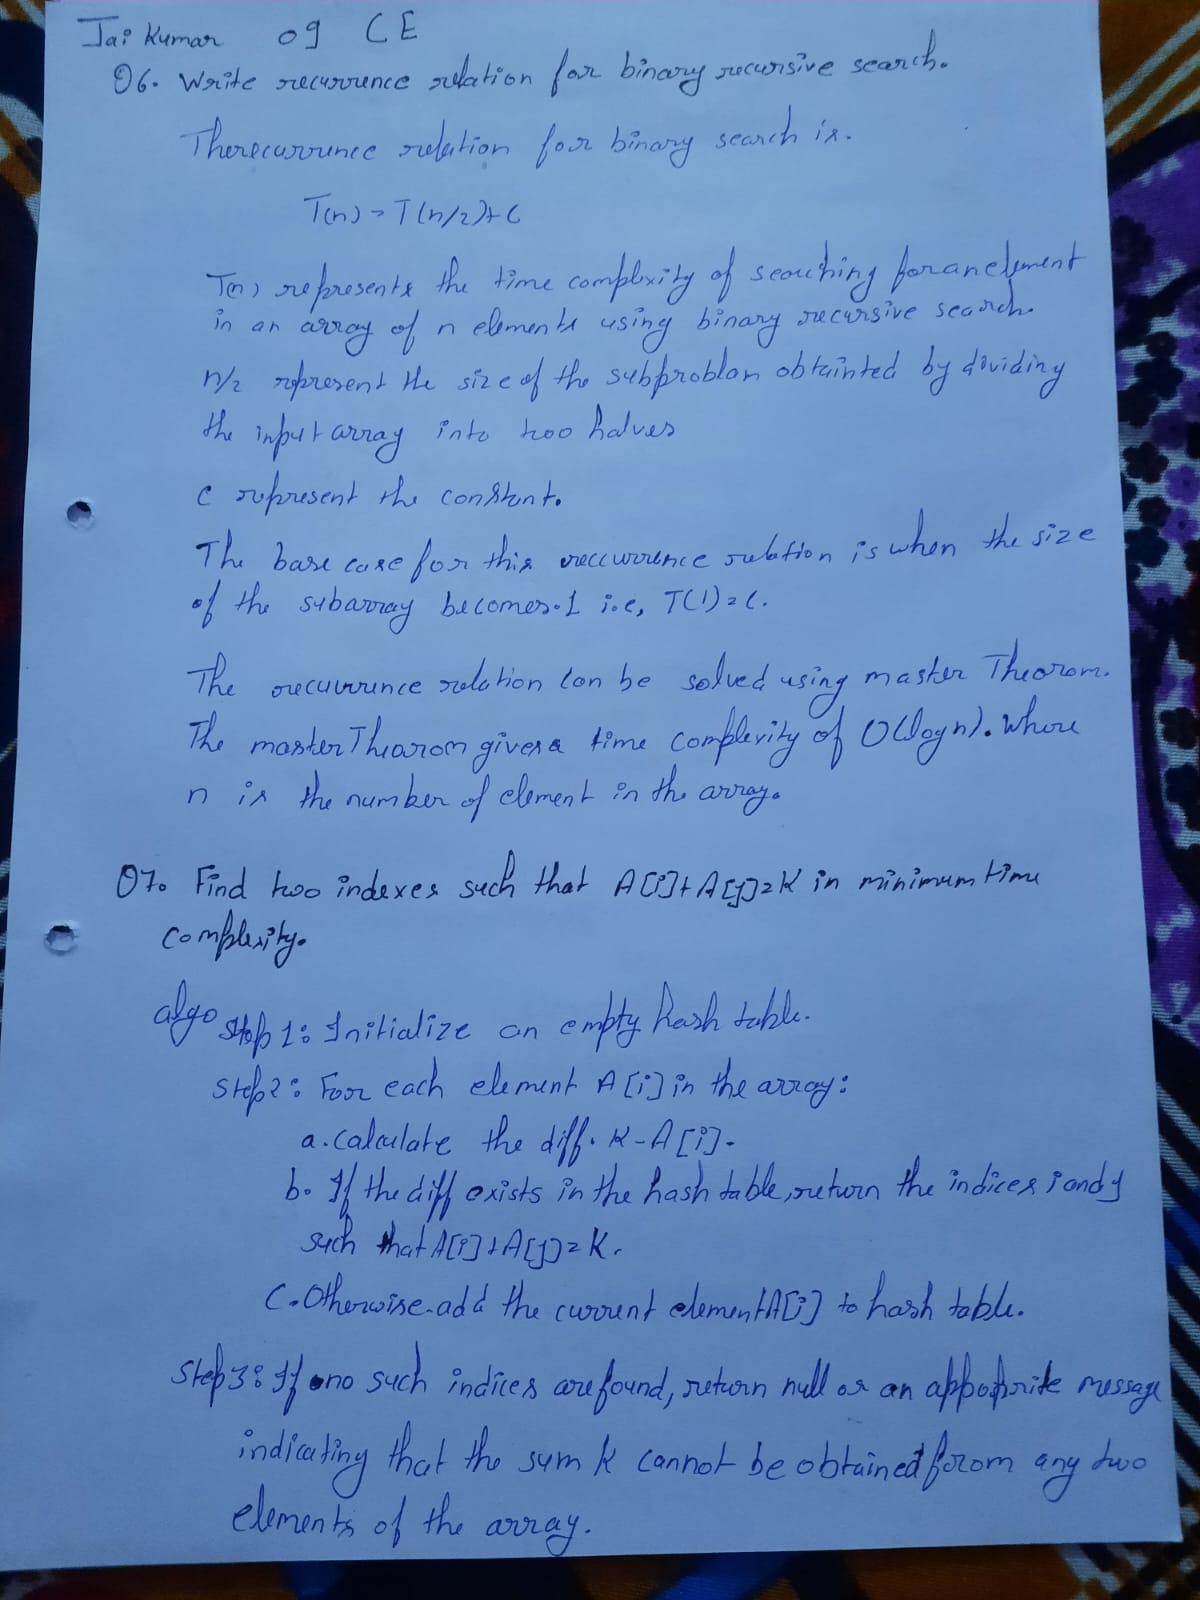 Jai Kumar 09 CE
Q6. Write recurrence relation for binary recursive search.
The recurrence relation for binary search is.
T(n) = T(n/2)+C
T(n) represents the time complexity of searching for an element
in an array of n elements using binary recursive search.
n/2 represent the size of the subproblem obtainted by dividing
the input array into two halves
C represent the constant.
The base case for this reccurrence relation is when the size
of the subarray becomes 1 i.e, T(1)=C.
The recurrence relation can be solved using master Theorem.
The master Thearom gives a time complexity of O(log n). Where
n is the number of element in the array.
Q7. Find two indexes such that A[i]+A[j]=K in minimum time
complexity.
algo Step 1: Initialize an empty hash table.
Step2: For each element A[i] in the array:
a. calculate the diff. K-A[i].
b. If the diff exists in the hash table, return the indices i and j
such that A[i]+A[j]=K.
C. Otherwise add the current element A[i] to hash table.
Step3: If no such indices are found, return null or an message
indicating that the sum K cannot be obtained from any two
elements of the array.